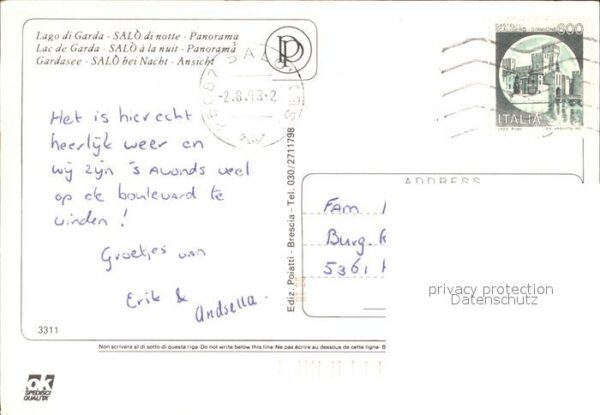 Lago di Garda - SALÒ di notte - Panorama
Lac de Garda - SALÒ à la nuit - Panorama
Gardasee - SALÒ bei Nacht - Ansicht
P
25087 SALO'
-2.8.93-2
CASTELLO
SCALIGERO - SIRMIONE
600
ITALIA
Het is hier echt
heerlijk weer en
wij zijn 's Avonds veel
op de boulevard te
vinden!
Groetjes van
Erik &
Andsella.
Ediz. Poiatti - Brescia - Tel. 030/2711798
ADDRESS
Fam
Burg.
5361
privacy protection
Datenschutz
3311
Non scrivere al di sotto di questa riga. Do not write below this line - Ne pas écrire au dessous de cette ligne.
ok
SPEDISCI
QUALITÀ